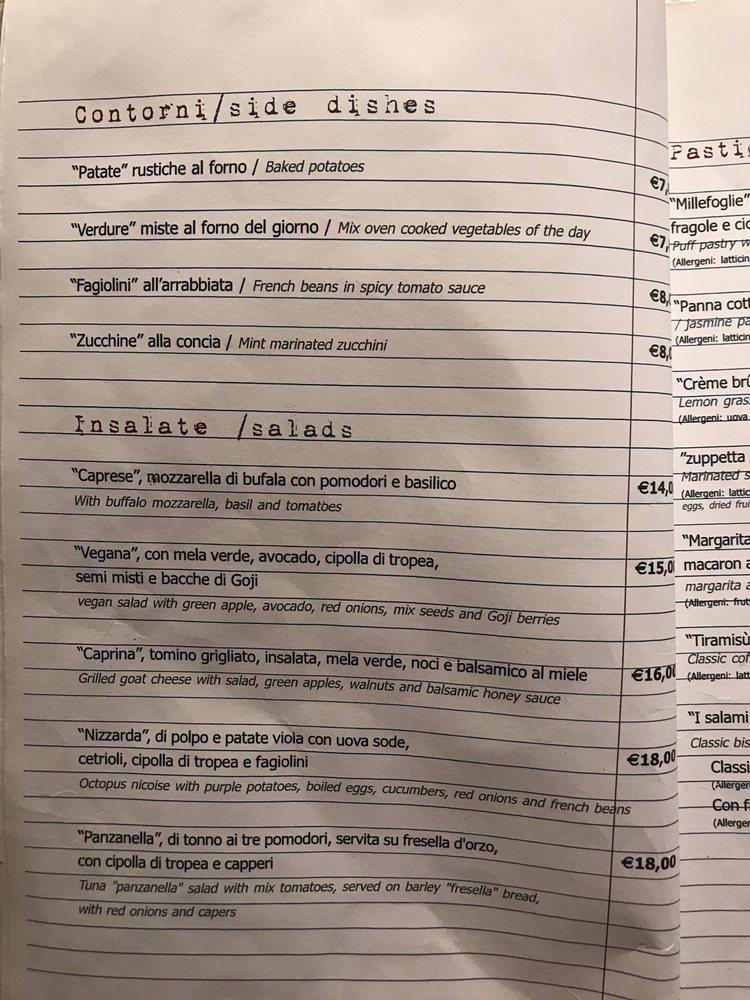 Contorni/side dishes
"Patate" rustiche al forno / Baked potatoes
€7,
"Verdure" miste al forno del giorno / Mix oven cooked vegetables of the day
€7,
"Fagiolini" all'arrabbiata / French beans in spicy tomato sauce
€8,
"Zucchine" alla concia / Mint marinated zucchini
€8,0
Insalate /salads
"Caprese", mozzarella di bufala con pomodori e basilico
€14,0
With buffalo mozzarella, basil and tomatoes
"Vegana", con mela verde, avocado, cipolla di tropea,
€15,0
semi misti e bacche di Goji
vegan salad with green apple, avocado, red onions, mix seeds and Goji berries
"Caprina", tomino grigliato, insalata, mela verde, noci e balsamico al miele
€16,00
Grilled goat cheese with salad, green apples, walnuts and balsamic honey sauce
"Nizzarda", di polpo e patate viola con uova sode,
cetrioli, cipolla di tropea e fagiolini
€18,00
Octopus nicoise with purple potatoes, boiled eggs, cucumbers, red onions and french beans
"Panzanella", di tonno ai tre pomodori, servita su fresella d'orzo,
con cipolla di tropea e capperi
€18,00
Tuna "panzanella" salad with mix tomatoes, served on barley "fresella" bread,
with red onions and capers
Pasti
"Millefoglie"
fragole e cio
Puff pastry w
(Allergeni: latticin
"Panna cott
/ Jasmine pa
(Allergeni: latticin
"Crème brû
Lemon gras
(Allergeni: uova
"zuppetta
Marinated s
(Allergeni: lattic
eggs, dried frui
"Margarita
macaron a
margarita a
(Allergeni: frut
"Tiramisù
Classic cof
(Allergeni: latt
"I salami
Classic bis
Classi
(Allergen
Con f
(Allerger